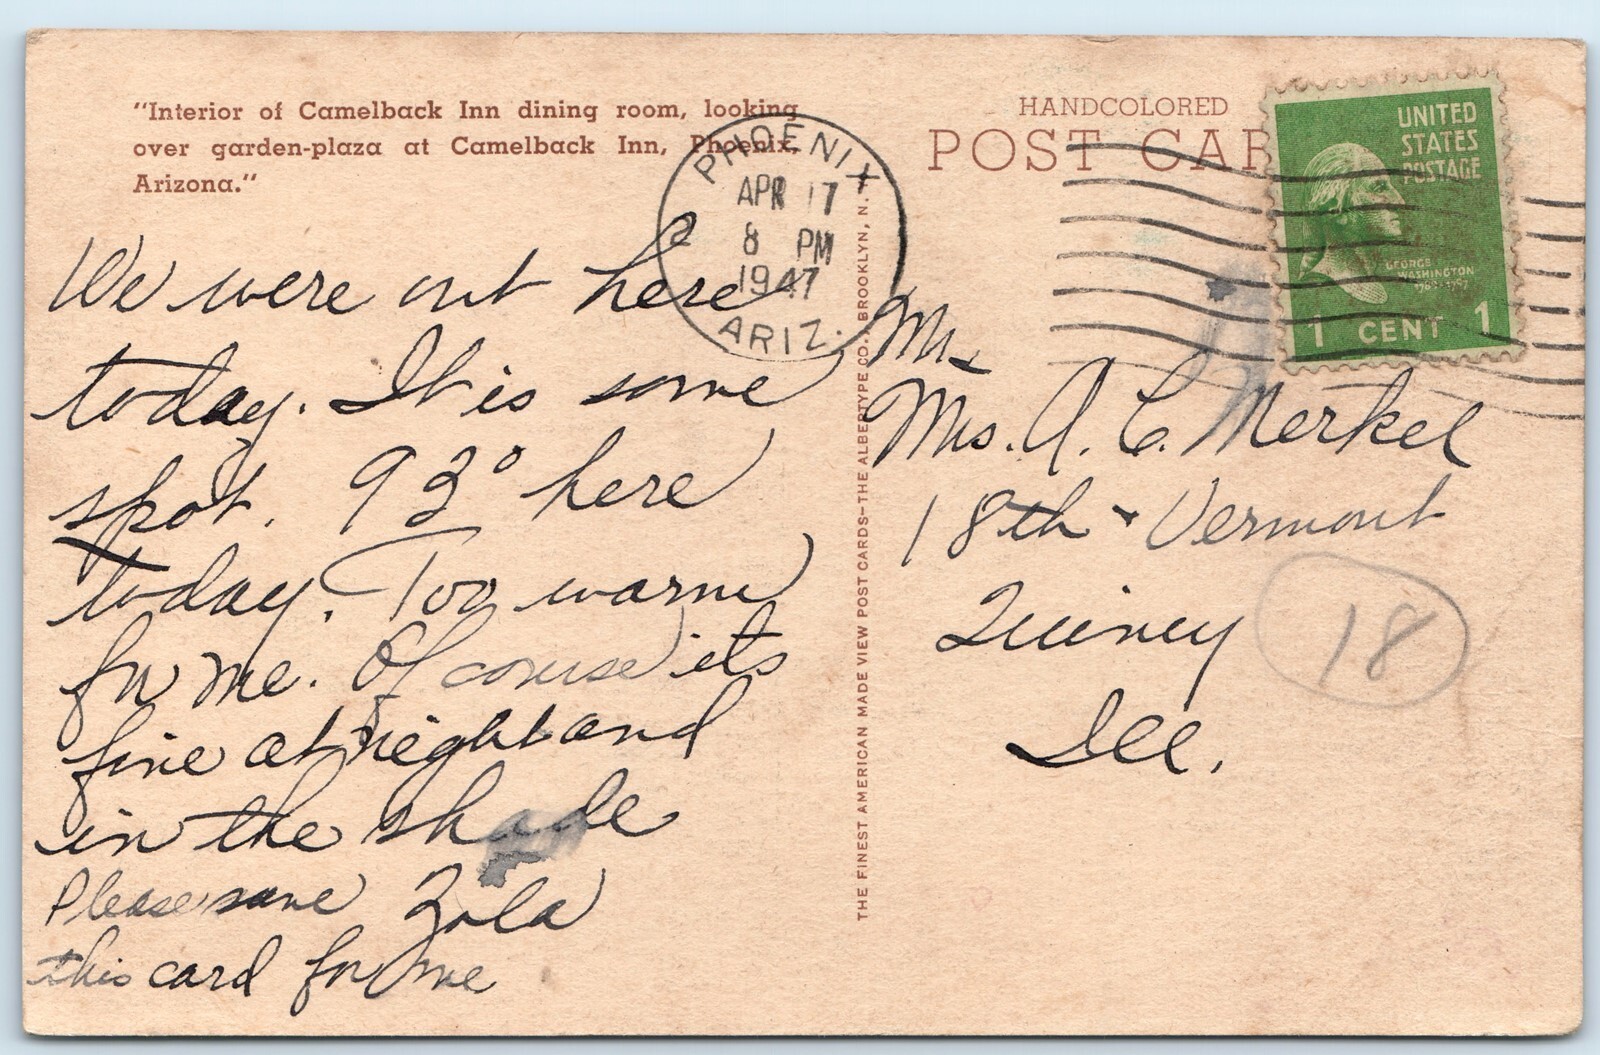 "Interior of Camelback Inn dining room, looking
over garden-plaza at Camelback Inn, Phoenix,
Arizona."
HANDCOLORED
POST CAR
UNITED
STATES
POSTAGE
GEORGE
WASHINGTON
1 CENT 1
PHOENIX
APR 17
8 PM
1947
ARIZ.
We were out here
today. It is some
spot. 93° here
today. Too warm
for me. Of course its
fine at night and
in the shade
Zola
Please save
this card for me
THE FINEST AMERICAN MADE VIEW POST CARDS—THE ALBERTYPE CO., BROOKLYN, N.
Mr.
Mrs. A. C. Merkel
18th & Vermont
Quincy
Ill.
18